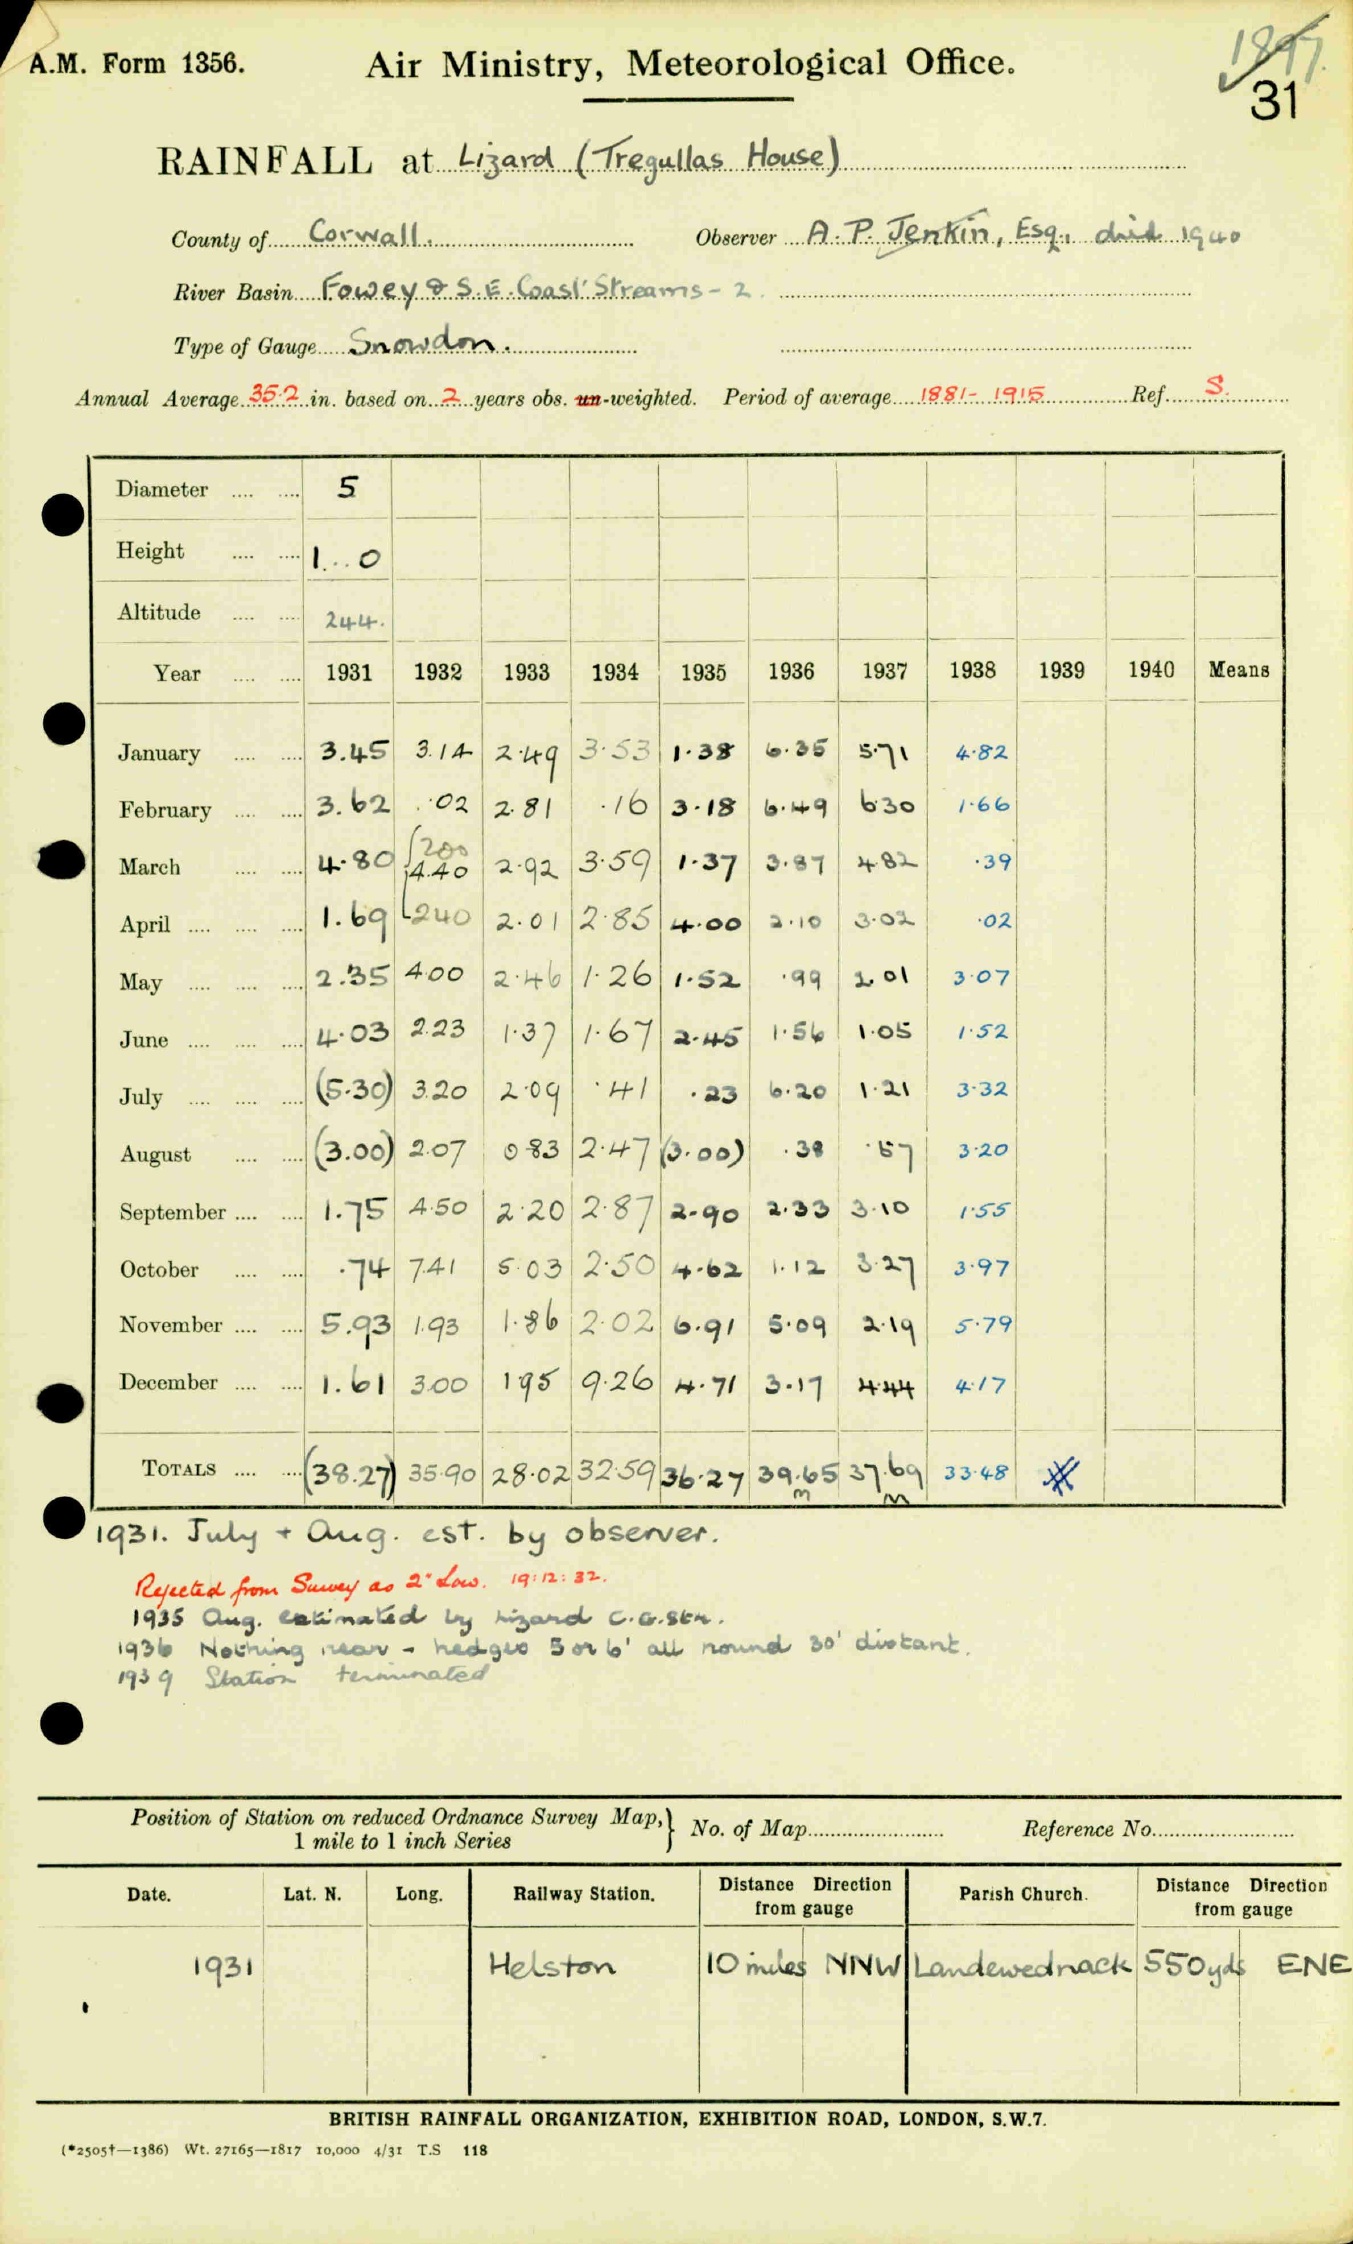 1897.
A.M. Form 1356. Air Ministry, Meteorological Office.
31
RAINFALL at Lizard (Tregullas House)
County of Corwall. Observer A. P. Jenkin, Esq., died 1940
River Basin Fowey & S.E. Coast Streams - 2.
Type of Gauge Snowdon.
Annual Average 35.2 in. based on 2 years obs. un-weighted. Period of average 1881 - 1915 Ref. S.
Diameter 5
Height 1...0
Altitude 244.
Year 1931 1932 1933 1934 1935 1936 1937 1938 1939 1940 Means
January 3.45 3.14 2.49 3.53 1.38 6.35 5.71 4.82
February 3.62 .02 2.81 .16 3.18 6.49 6.30 1.66
March 4.80 {200 4.40 2.92 3.59 1.37 3.87 4.82 .39
April 1.69 240 2.01 2.85 4.00 2.10 3.02 .02
May 2.35 4.00 2.46 1.26 1.52 .99 2.01 3.07
June 4.03 2.23 1.37 1.67 2.45 1.56 1.05 1.52
July (5.30) 3.20 2.09 .41 .23 6.20 1.21 3.32
August (3.00) 2.07 0.83 2.47 (3.00) .38 .57 3.20
September 1.75 4.50 2.20 2.87 2.90 2.33 3.10 1.55
October .74 7.41 5.03 2.50 4.62 1.12 3.27 3.97
November 5.93 1.93 1.86 2.02 6.91 5.09 2.19 5.79
December 1.61 3.00 1.95 9.26 4.71 3.17 4.44 4.17
TOTALS (38.27) 35.90 28.02 32.59 36.27 39.65 37.69 33.48
m m
1931. July + Aug. est. by observer.
Rejected from Survey as 2" Low. 19:12:32.
1935 Aug. estimated by Lizard C.G. Stn.
1936 Nothing near - hedges 5 or 6' all round 30' distant.
1939 Station terminated
Position of Station on reduced Ordnance Survey Map,} No. of Map Reference No.
1 mile to 1 inch Series
Date. Lat. N. Long. Railway Station. Distance Direction from gauge Parish Church. Distance Direction from gauge
1931 Helston 10 miles NNW Landewednack 550 yds ENE
BRITISH RAINFALL ORGANIZATION, EXHIBITION ROAD, LONDON, S.W.7.
(*2505†—1386) Wt. 27165—1817 10,000 4/31 T.S 118